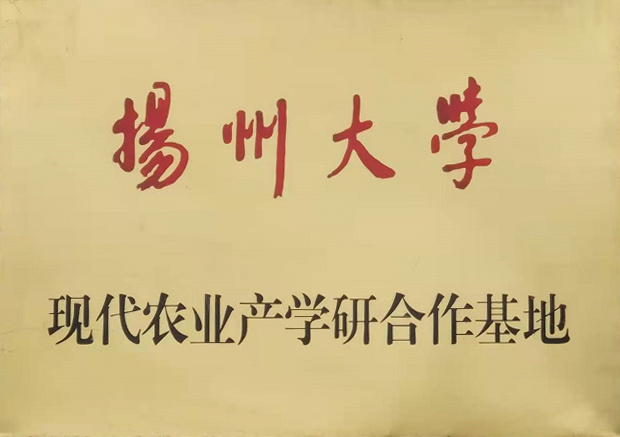 揚州大学
现代农业产学研合作基地